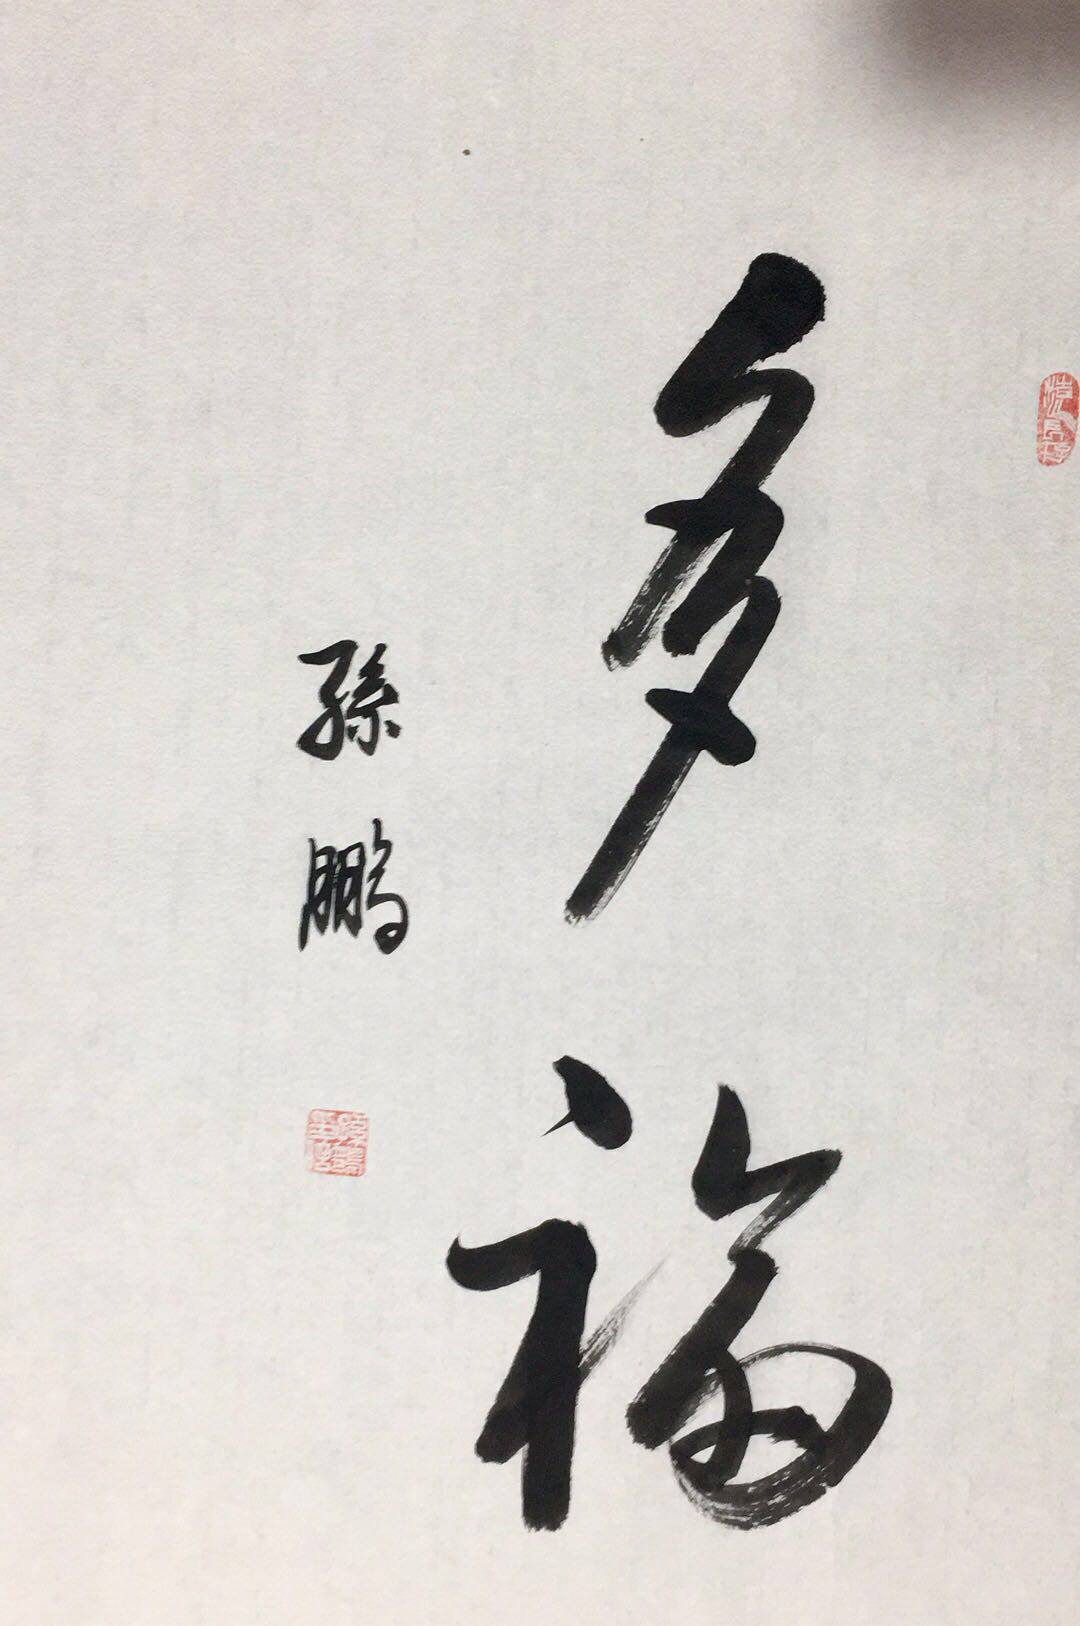 多福
孫鵬